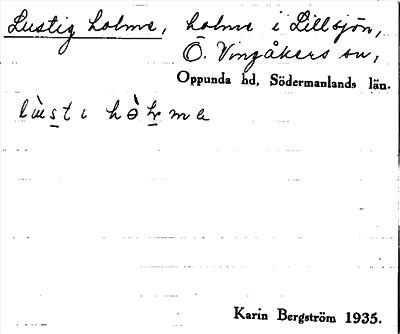 Lustig holme, holme i Lillsjön,
Ö. Vingåkers sn,
Oppunda hd, Södermanlands län.
lùsti hòlme
Karin Bergström 1935.